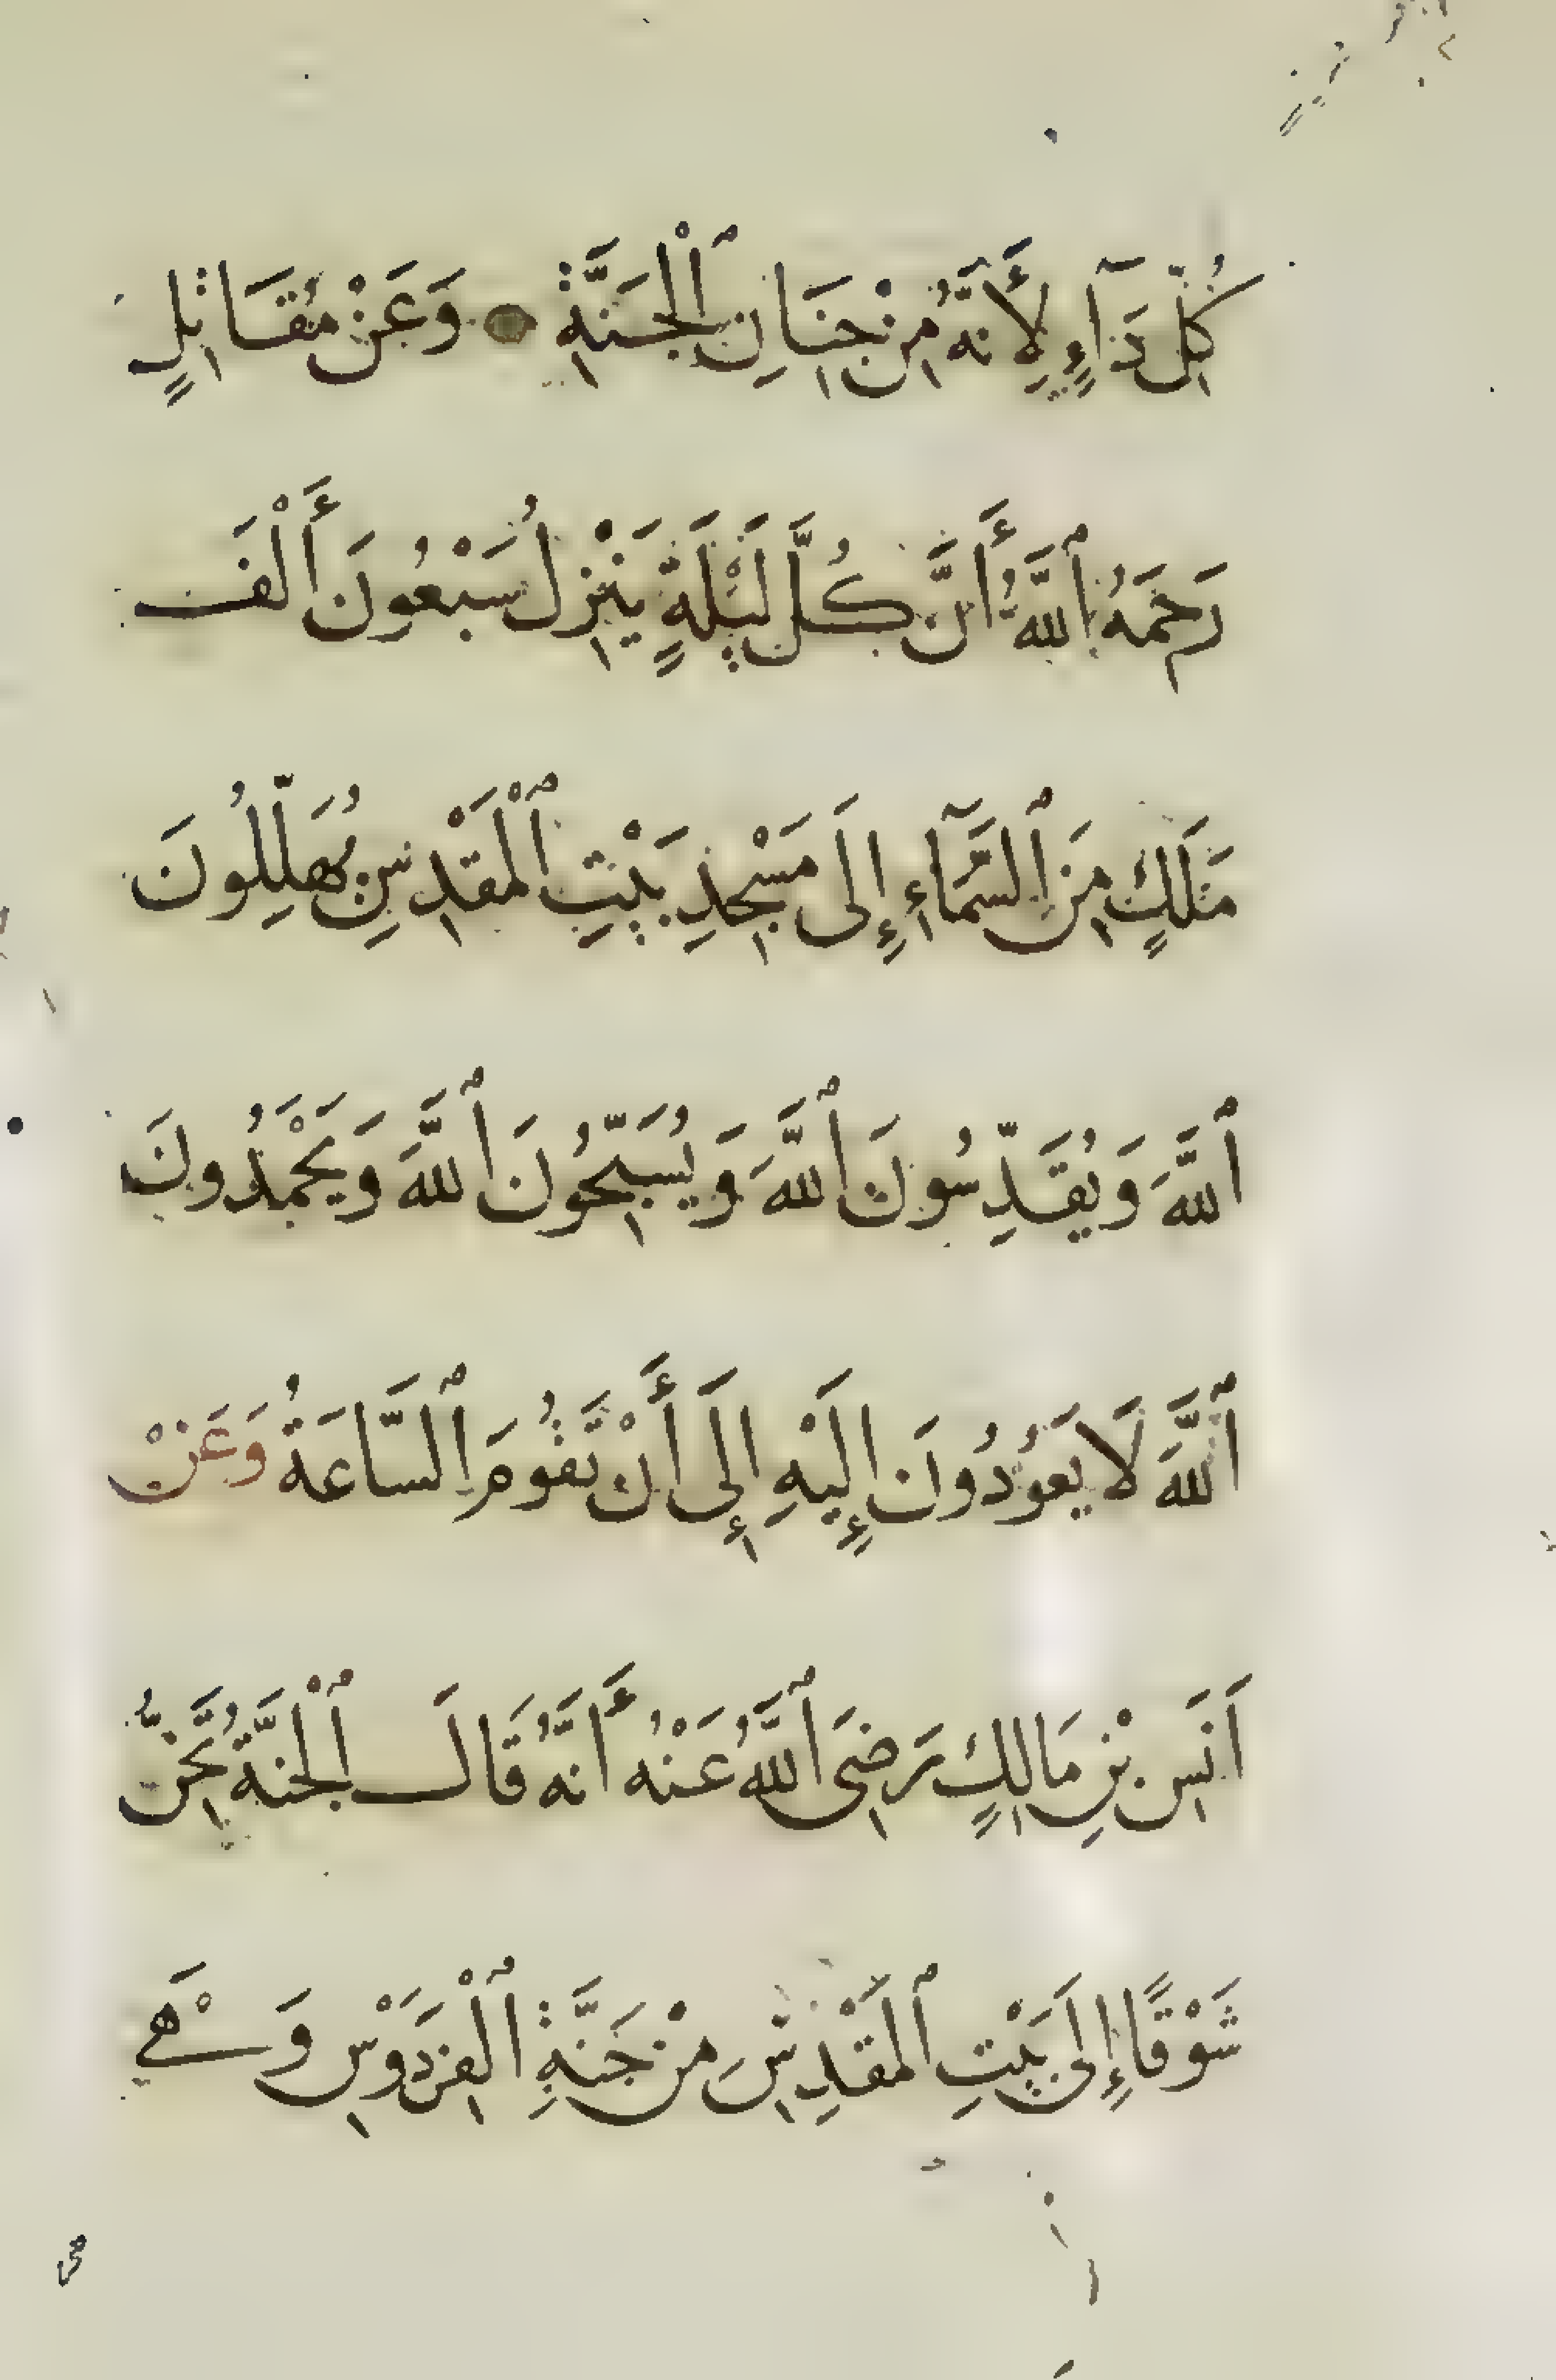 كُلِّ دَآءٍ لِأَنَّهُ مِنْ جِنَانِ ٱلْجَنَّةِ وَعَنْ مُقَاتِلٍ
رَحِمَهُ ٱللَّهُ أَنَّ كُلَّ لَيْلَةٍ يَنْزِلُ سَبْعُونَ أَلْفَ
مَلَكٍ مِنَ ٱلسَّمَآءِ إِلَى مَسْجِدِ بَيْتِ ٱلْمَقْدِسِ يُهَلِّلُونَ
ٱللَّهَ وَيُقَدِّسُونَ ٱللَّهَ وَيُسَبِّحُونَ ٱللَّهَ وَيَحْمَدُونَ
ٱللَّهَ لَا يَعُودُونَ إِلَيْهِ إِلَى أَنْ تَقُومَ ٱلسَّاعَةُ وَعَنْ
اَنَسِ بْنِ مَالِكٍ رَضِيَ ٱللَّهُ عَنْهُ أَنَّهُ قَالَ ٱلْجَنَّةُ تَحِنُّ
شَوْقًا إِلَى بَيْتِ ٱلْمَقْدِسِ مِنْ جَنَّةِ ٱلْفِرْدَوْسِ وَهْيَ